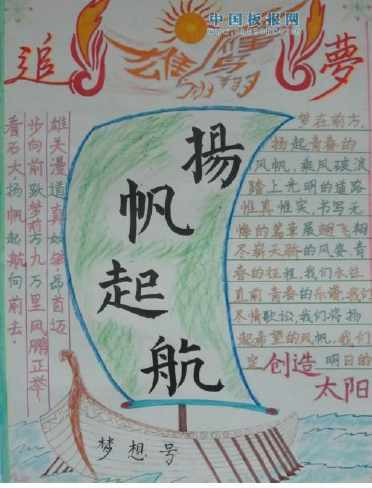 中国板报网
追
夢
揚帆起航
梦在前方,
扬起青春的
风帆,乘风破浪
踏上光明的道路
惟真惟实,书写无
悔的篇章展翅飞翔
尽崭天骄的风姿 青
春的征程,我们永往
直前 青春的乐谱,我们
尽情歌讼,我们将扬
起希望的风帆,我们
定创造明日的
太阳
雄关漫道真如铁·昂首迈
步向前 梦前方九万里风鹏正举
看石大·扬帆起航向前去。
梦想号